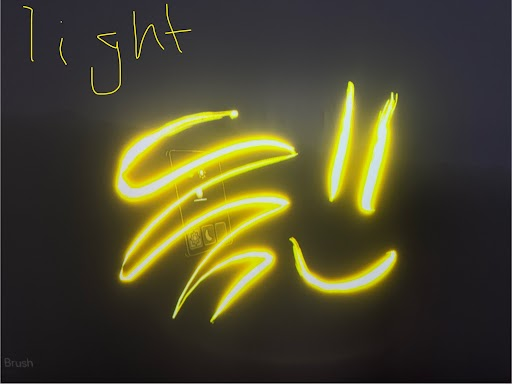 light
Brush